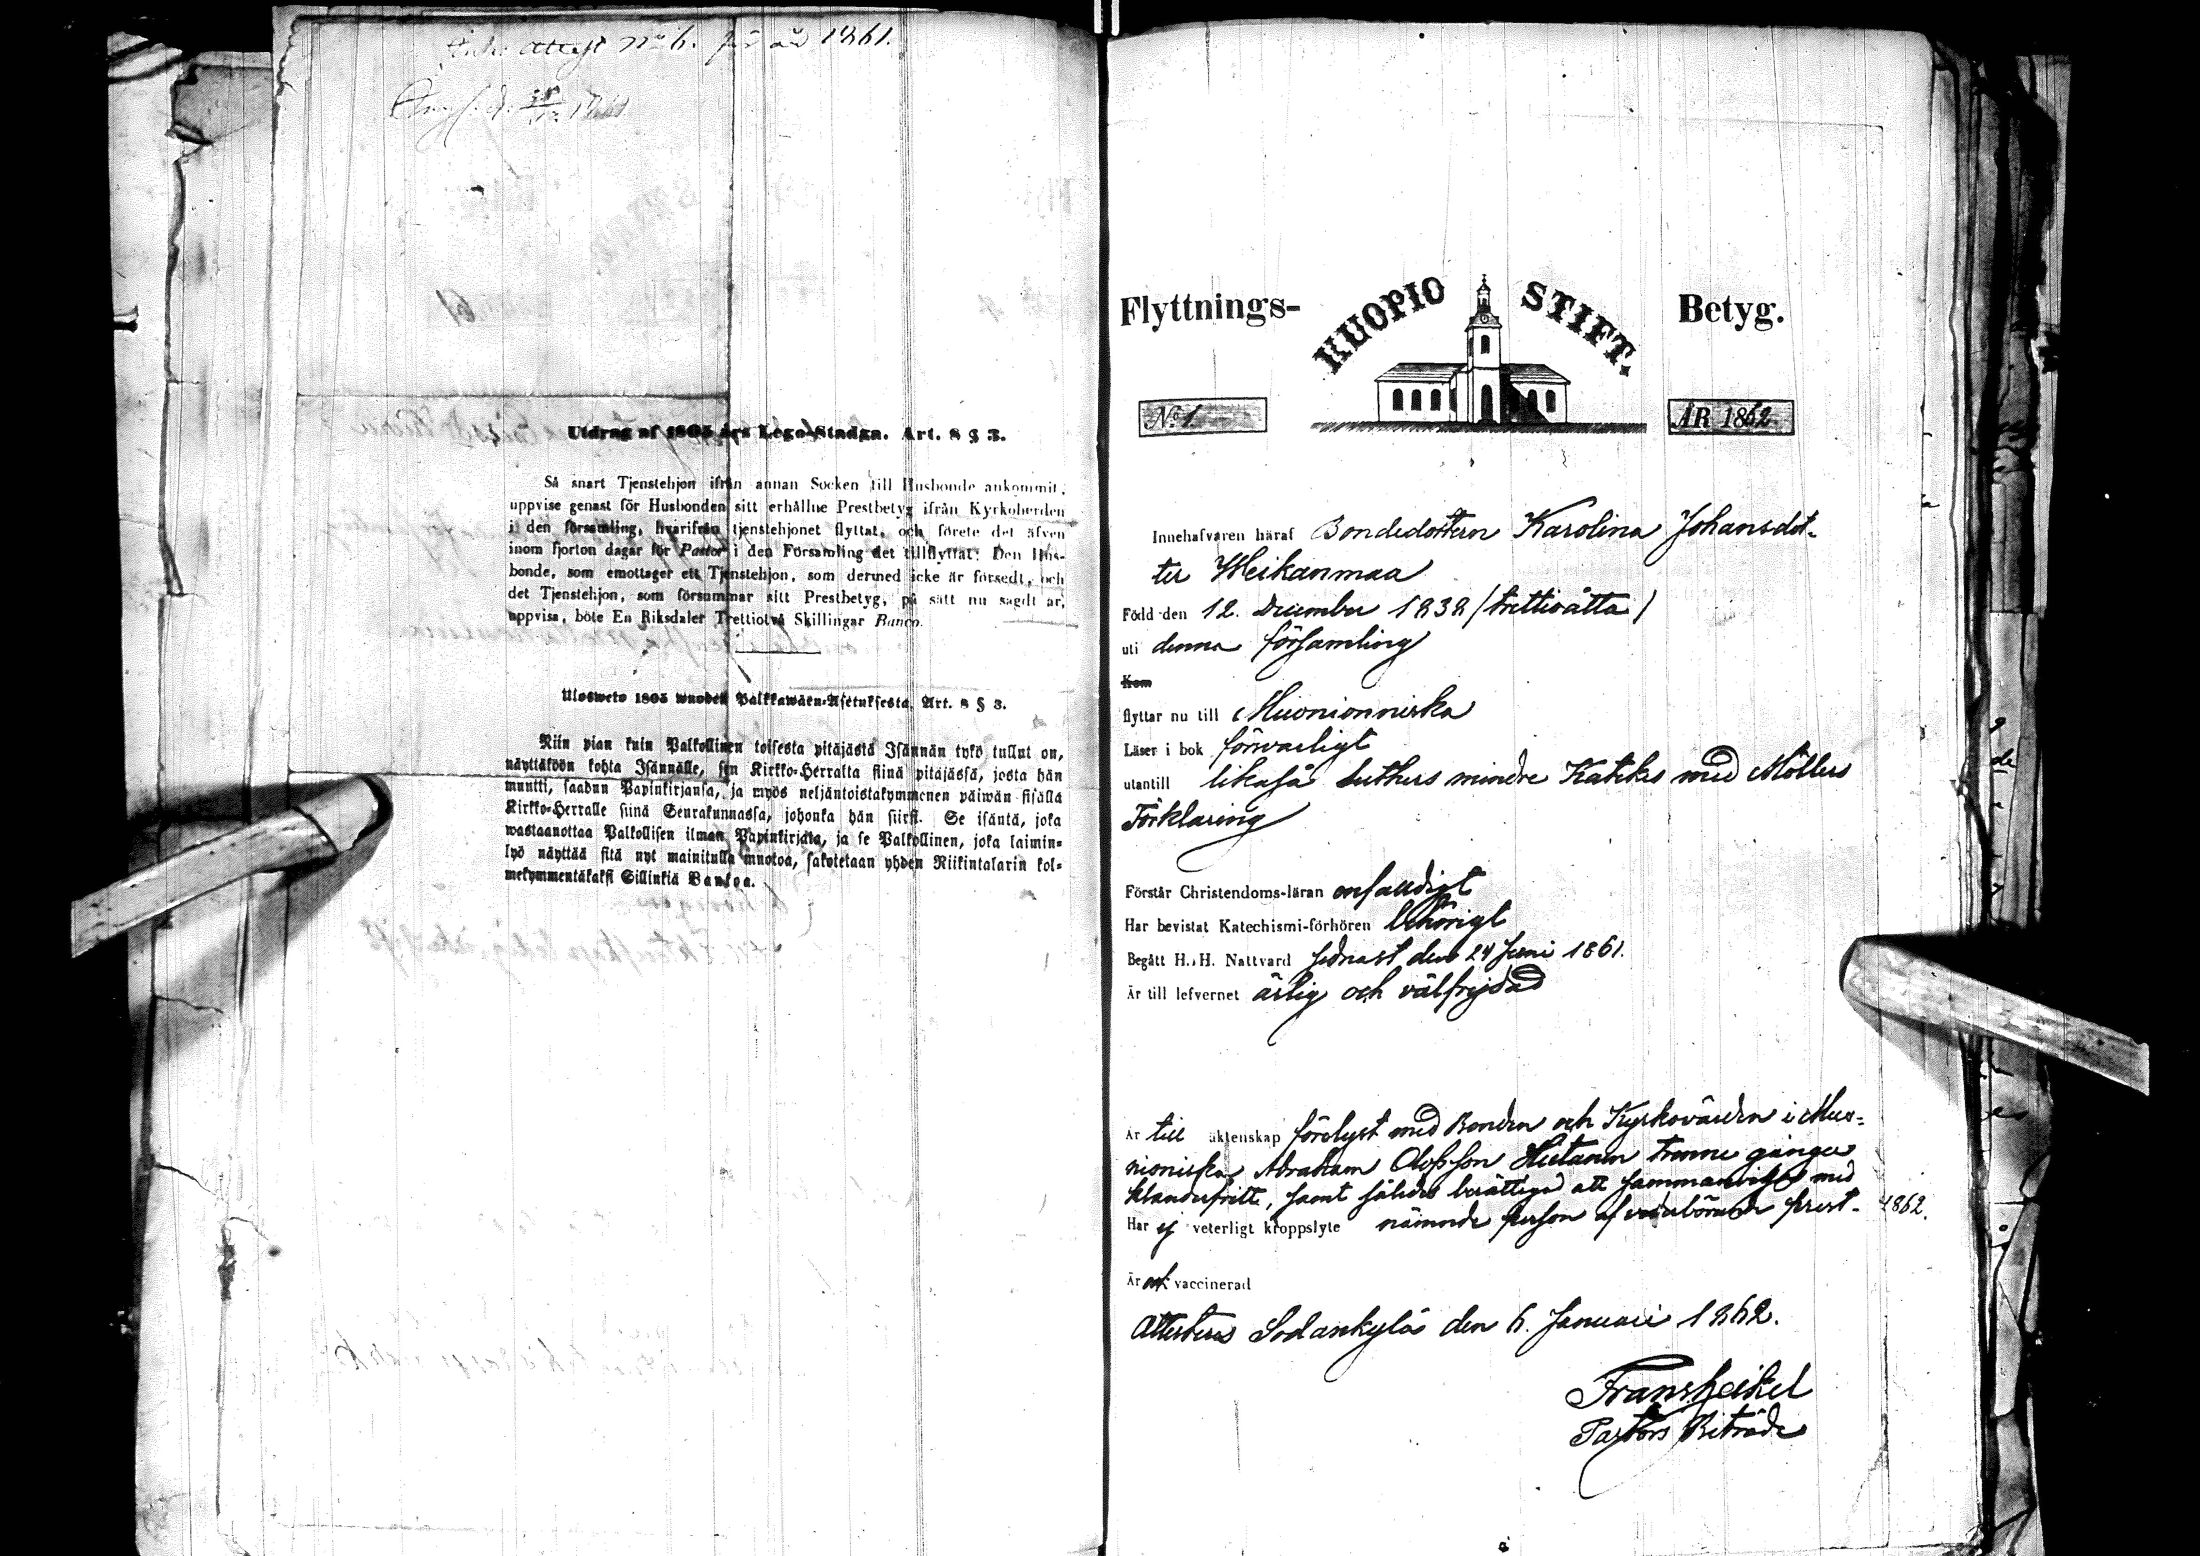 Attest No 6. 1861.
Utdrag af 1805 års Lego-Stadga. Art. 8 § 3.
Så snart Tjenstehjon ifrån annan Socken till Husbonde ankommit,
uppvise genast för Husbonden sitt erhållne Prestbetyg ifrån Kyrkoherden
i den församling, hvarifrån tjenstehjonet flyttat, och förete det äfven
inom fjorton dagar för Pastor i den Församling det tillflyttat. Den Hus-
bonde, som emottager ett Tjenstehjon, som dermed icke är försedt, och
det Tjenstehjon, som försummar sitt Prestbetyg, på sätt nu sagdt är,
uppvisa, böte En Riksdaler Trettiotvå Skillingar Banco.
Ulosweto 1805 wuoden Palkkawäen-Asetuksesta, Art. 8 § 3.
Niin pian kuin Palkollinen toisesta pitäjästä Isännän tykö tullut on,
näyttäköön kohta Isännälle, sen Kirkko-Herralta siinä pitäjässä, josta hän
muutti, saadun Papinkirjansa, ja myös neljäntoistakymmenen päiwän sisällä
Kirkko-Herralle siinä Seurakunnassa, johonka hän siirsi. Se isäntä, joka
wastaanottaa Palkollisen ilman Papinkirjata, ja se Palkollinen, joka laimin-
lyö näyttää sitä nyt mainitulla muotoa, sakotetaan yhden Riikintalarin kol-
mekymmentäkaksi Sillinkiä Bankoa.
Flyttnings- KUOPIO STIFT. Betyg.
No 1 ÅR 1862
Innehafvaren häraf Bondedottern Karolina Johansdot-
ter Heikanmaa
Född den 12. December 1838 (trettioåtta)
uti denna församling
Kom
flyttar nu till Muonionniska
Läser i bok försvarligt
utantill likaså Luthers mindre Katekes med Möllers
Förklaring
Förstår Christendoms-läran enfaldigt
Har bevistat Katechismi-förhören behörigt
Begått H. H. Nattvard sednast den 24 Juni 1861.
Är till lefvernet ärlig och välfrejdad
Är till äktenskap förelyst med Bonden och Kyrkovärden i Muo-
nioniska, Abraham Olofsson Hietanen trenne gånger
klanderfritt, samt således berättigad att sammanvigas med
Har ej veterligt kroppslyte nämnde person af vederbörande prest. 1862.
Är ock vaccinerad
Attesteras Sodankylä den 6. Januari 1862.
Frans Heikel
Pastors Biträde